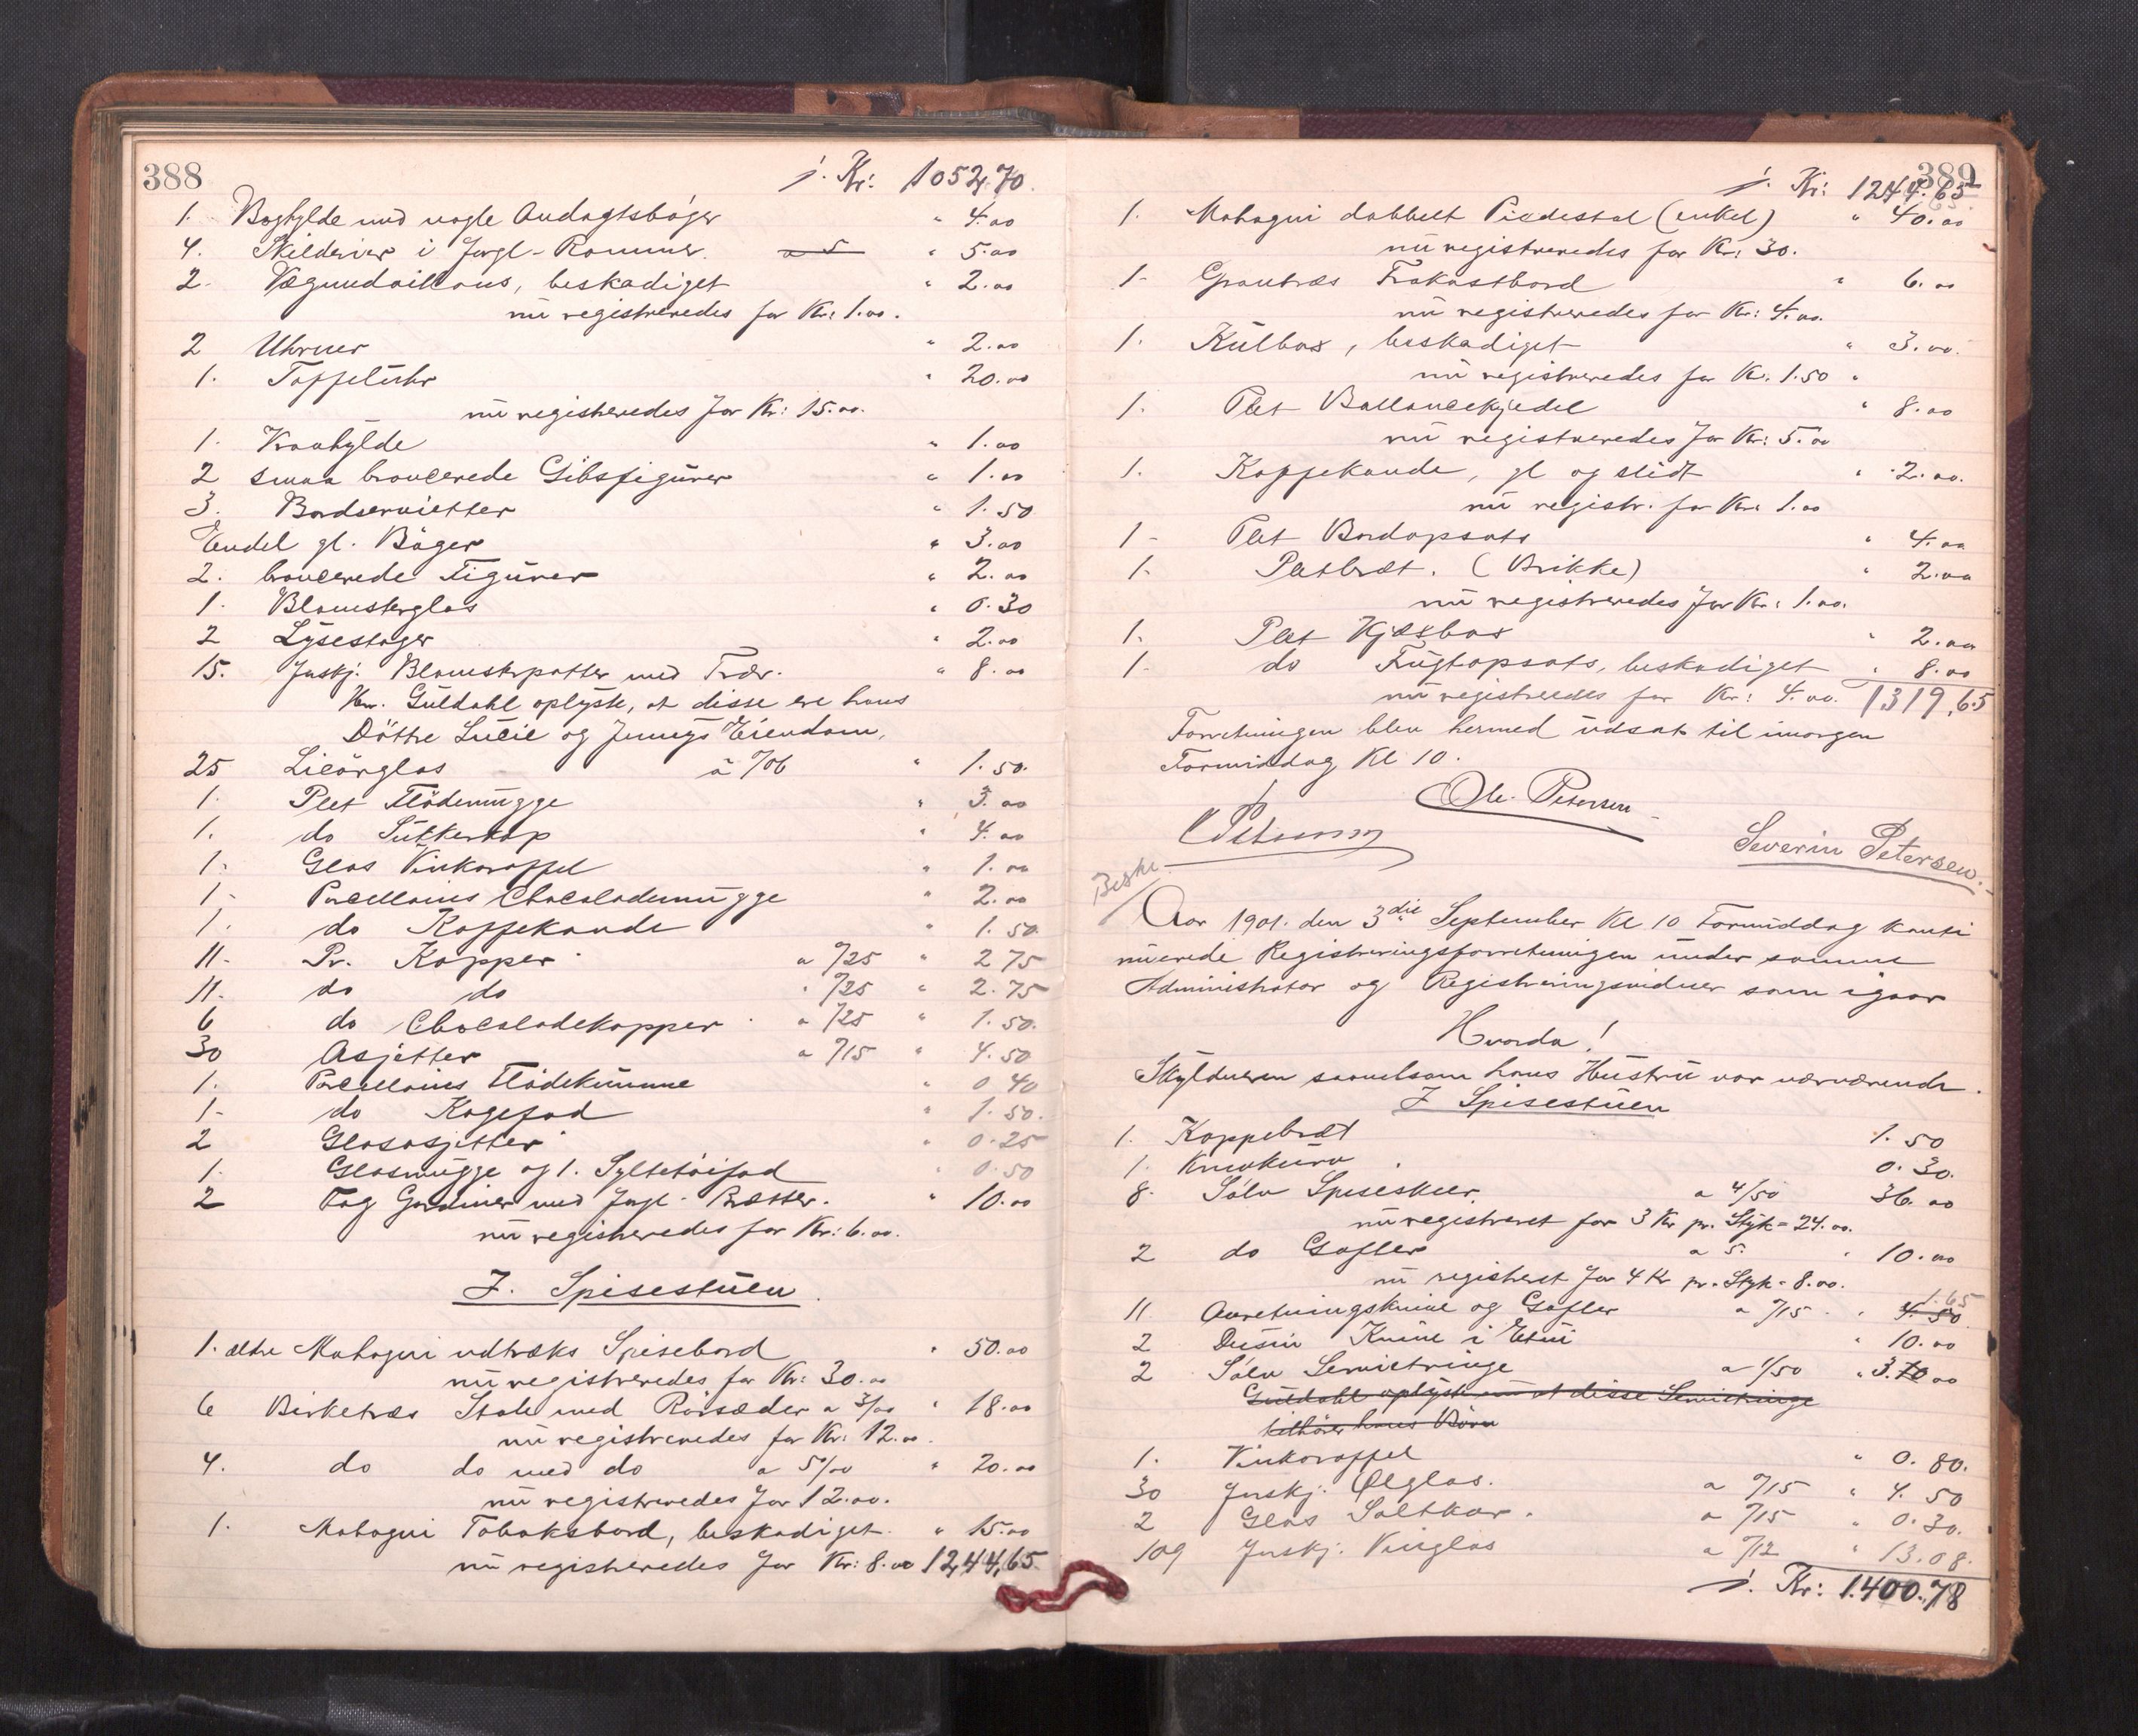 388
/. Kr: 1052,70.
1. Boghylde med nogle Andagtsbøger " 4.00
4. Skilderier i Forgl-Rammer. a 5 " 5.00
2. Vægmedaillons, beskadiget " 2.00
nu registreredes for Kr: 1.00.
2 Uhrner " 2.00
1. Toffeluhr " 20.00
nu registreredes for Kr: 15.00.
1. Kronhylde " 1.00
2 smaa broncerede Gibsfigurer " 1.00
3. Bordservietter " 1.50
Endel gl. Bøger " 3.00
2. broncerede Figurer " 2.00
1. Blomsterglas " 0.30
2 Lysestager " 2.00
15. Forskj. Blomsterpotter med Trær. " 8.00
Hr. Guldahl oplyste, at disse ere hans
Døttre Lucie og Jennys Eiendom,
25 Licørglas à %06 " 1.50.
1. Plet Flødemugge " 3.00
1. do Sukkerkop " 4.00
1. Glas Vinkaraffel " 1.00
1- Porcellains Chocolademugge " 2.00
1. do Kaffekande " 1.50.
11- Pr. Kopper a %25 " 2 75
11. do do " %25 " 2.75
6 do Chocoladekopper a %25 " 1.50.
30 Asjetter a %15 " 4.50
1. Porcellains Flødekumme " 0 40
1- do Kagefad " 1.50.
2 Glasasjetter " 0.25
1. Glasmugge og 1. Syltetøifad " 0.50
2 Fag Gardiner med Forgl. Brætter. " 10.00
nu registreredes for Kr: 6.00.
I. Spisestuen.
1. ældre Mahogni udtræks Spisebord " 50.00
nu registreredes for Kr: 30.00
6 Birketræs Stole med Rørsæder a 3/00 " 18.00
nu registreredes for Kr: 12.00.
4. do do med do a 5/00 " 20.00
nu registreredes for 12.00.
1. Mahogni Tobaksbord, beskadiget. " 15.00
nu registreredes for Kr: 8.00 1244,65.
389
/. Kr: 1244.65
1. Mahogni dobbelt Piedestal (enkel) " 40.00
nu registreredes for Kr: 30.
1- Grantræs Frokostbord " 6.00
nu registreredes for Kr: 4.00.
1. Kulbox, beskadiget " 3.00.
nu registreredes for Kr. 1.50 "
1. Plet Ballancekjedel " 8.00
nu registreredes for Kr: 5.00
1. Kaffekande, gl og slidt " 2.00.
nu registr. for Kr: 1.00
1- Plet Bordopsats " 4.00
1. Pletbræt. (Brikke) " 2.00
nu registreredes for Kr: 1.00.
1. Plet Kjæxbox " 2.00
1- do Frugtopsats, beskadiget " 8.00
nu registreredes for Kr: 4.00. 1319,65
Forretningen blev hermed udsat til imorgen
Formiddag Kl 10.
Ole Petersen
Severin Petersen.
Beskr.
Aar 1901. den 3die September Kl 10 Formiddag konti
nuerede Registreringsforretningen under samme
Administrator og Registreringsvidner som igaar
Hvorda!
Skyldneren saavelsom hans Hustru var nærværende.
I Spisestuen
1. Kaffebræt 1.50
1. Knivkurv 0.30.
8. Sølv Spiseskeer. a 4/50 36.00
nu registreret for 3 Kr pr. Styk = 24.00.
2 do Gafler a 5. " 10.00
nu registreret for 4 Kr pr. Styk = 8.00.
11 Anretningsknive og Gafler a %15. " 4.50 1.65
2 Dusin Knive i Etui " 10.00
2 Sølv Servietringe a 1/50 " 3.00
Guldahl oplyste nu at disse Servietringe
tilhører hans Børn
1. Vinkaraffel " 0.80.
30 Forskj. Ølglas. a %15 " 4.50
2 Glas Saltkar. a %15 " 0.30.
109 Forskj. Vinglas a %12 " 13.08.
/. Kr: 1.400.78